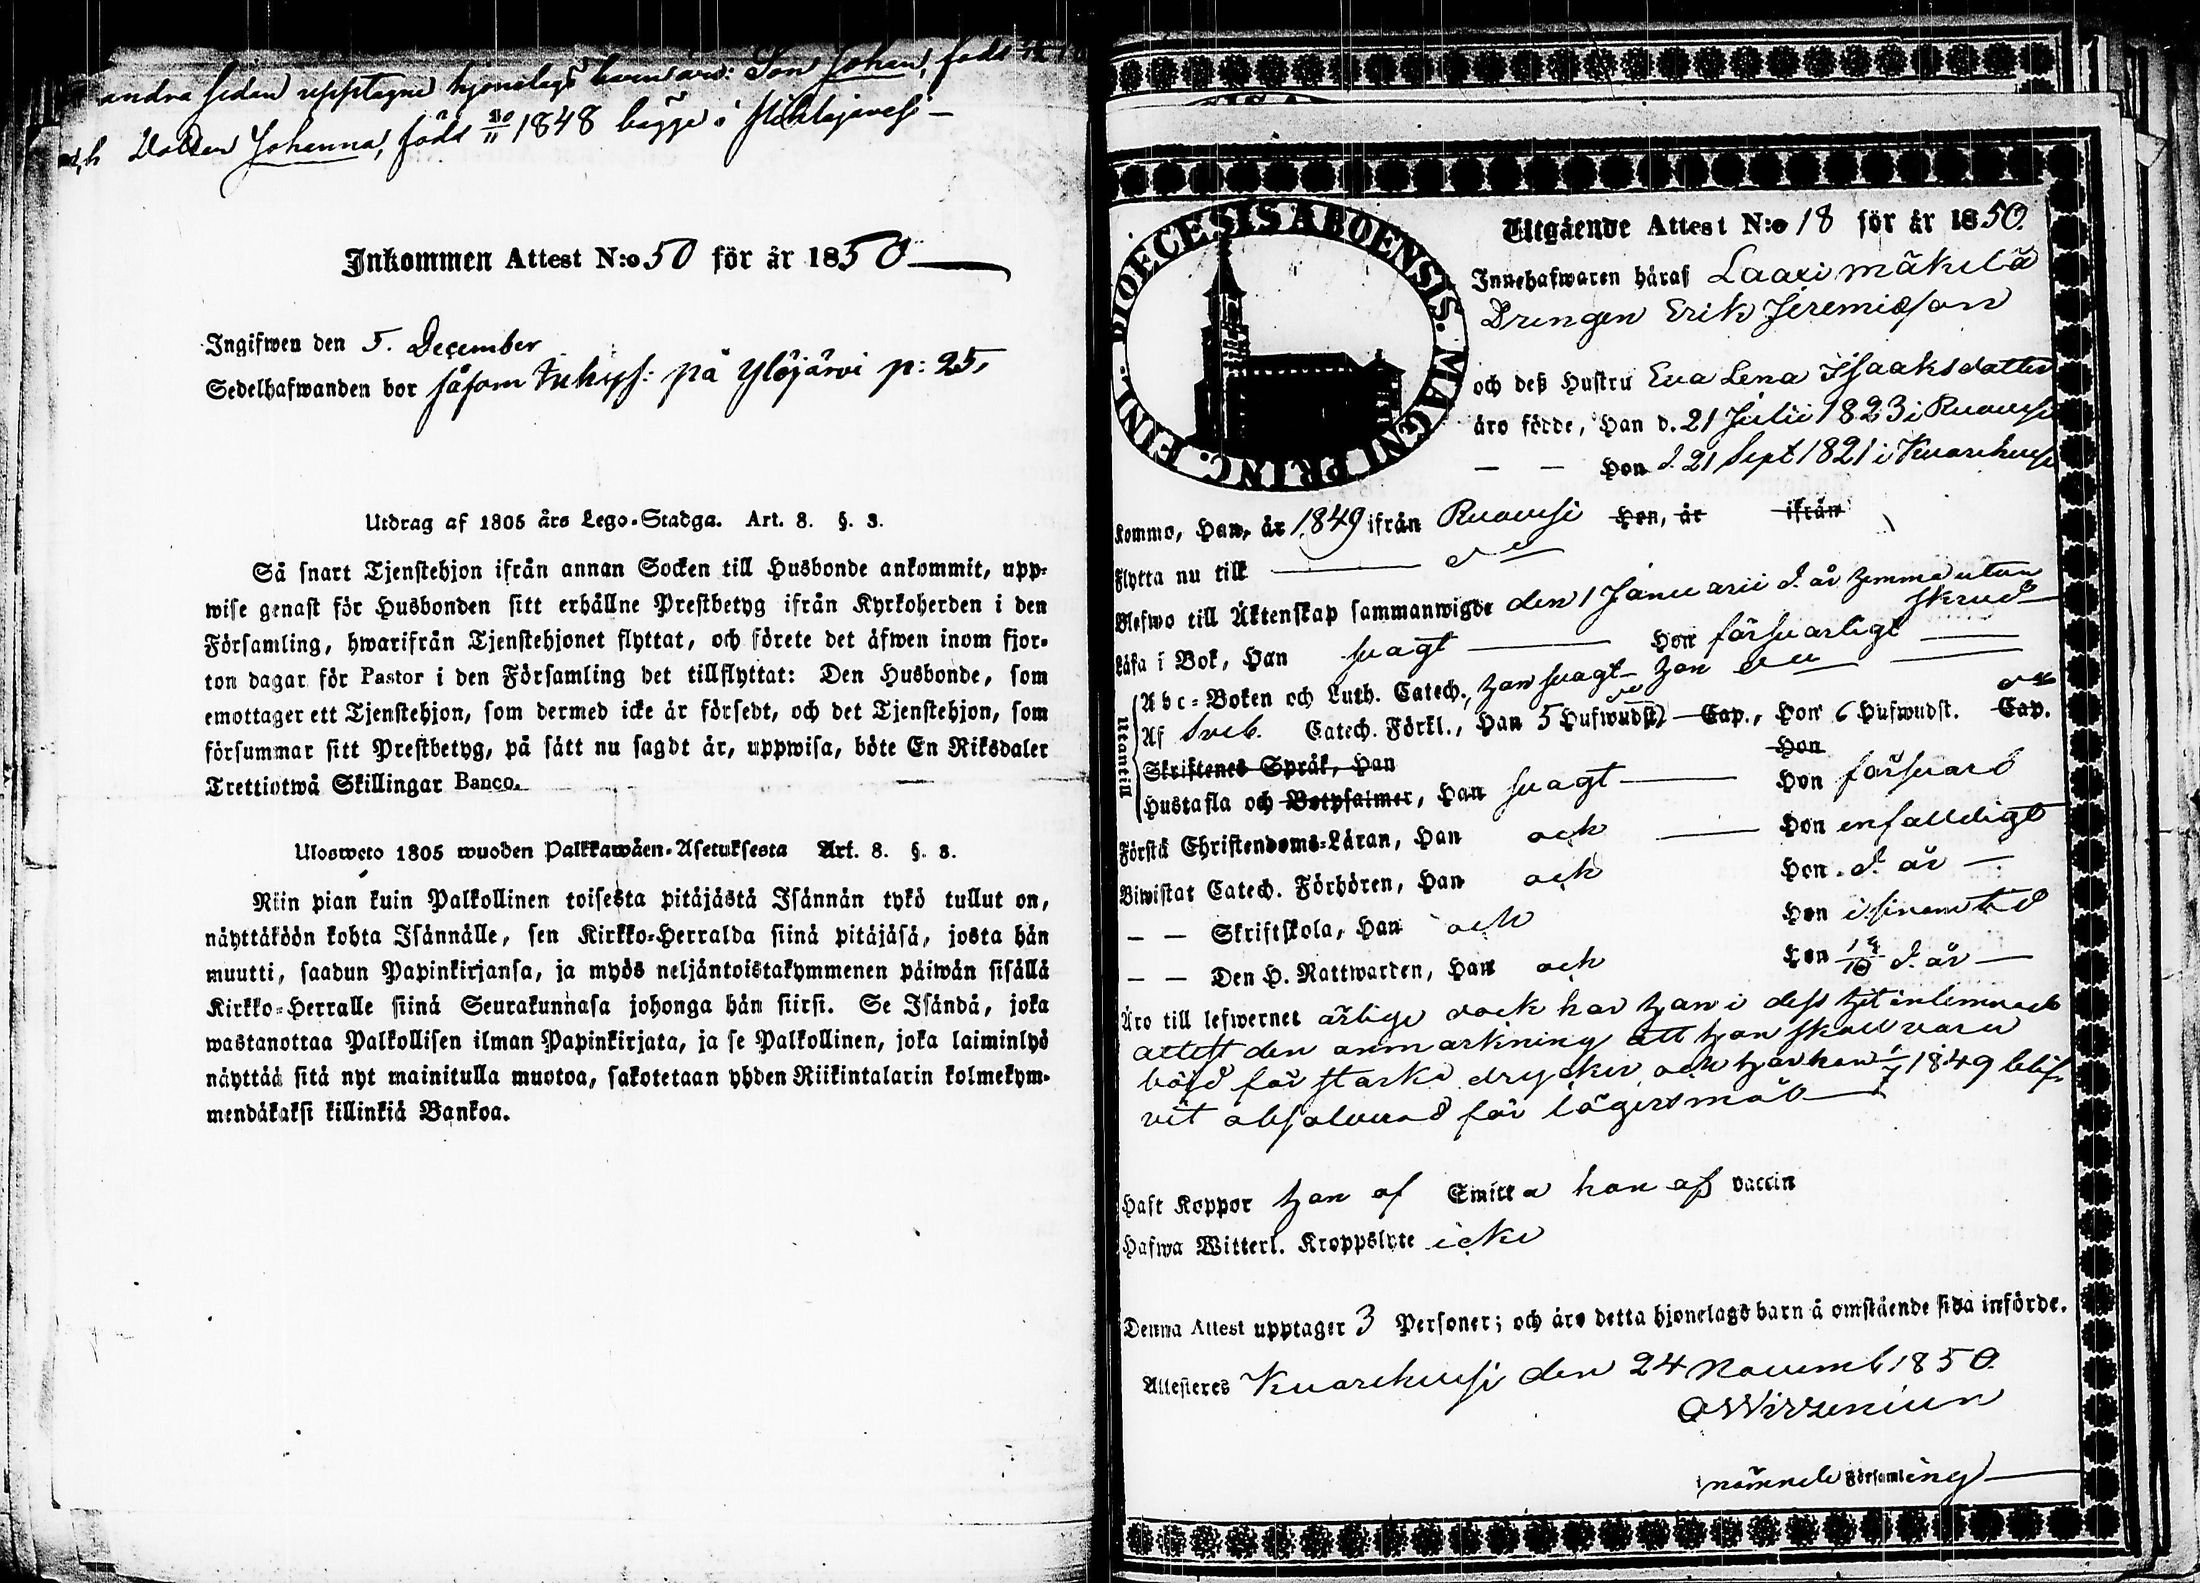 andra sidan upptagne hjonelags barn äro: Son Johan, född
och Dottren Johanna, född 20/11 1848 bägge i
Inkommen Attest N:o 50 för år 1850
Ingifwen den 5. December
Sedelhafwanden bor såsom Inhys: på Ylöjärvi p: 25,
Utdrag af 1805 års Lego-Stadga. Art. 8. §. 3.
Så snart Tjenstehjon ifrån annan Socken till Husbonde ankommit, upp-
wise genast för Husbonden sitt erhållne Prestbetyg ifrån Kyrkoherden i den
Församling, hwarifrån Tjenstehjonet flyttat, och förete det äfwen inom fjor-
ton dagar för Pastor i den Församling det tillflyttat: Den Husbonde, som
emottager ett Tjenstehjon, som dermed icke är försedt, och det Tjenstehjon, som
försummar sitt Prestbetyg, på sätt nu sagdt är, uppwisa, böte En Riksdaler
Trettiotwå Skillingar Banco.
Ulosweto 1805 wuoden Palkkawäen-Asetuksesta Art. 8. §. 3.
Niin pian kuin Palkollinen toisesta pitäjästä Isännän tykö tullut on,
näyttäköön kohta Isännälle, sen Kirkko-Herralda siinä pitäjäsä, josta hän
muutti, saadun Papinkirjansa, ja myös neljäntoistakymmenen päiwän sisällä
Kirkko-Herralle siinä Seurakunnasa johonga hän siirsi. Se Isändä, joka
wastanottaa Palkollisen ilman Papinkirjata, ja se Palkollinen, joka laiminlyö
näyttää sitä nyt mainitulla muotoa, sakotetaan yhden Riikintalarin kolmekym-
mendäkaksi killinkiä Bankoa.
DIOECESIS ABOENSIS. MAGNI PRINC. FINL.
Utgående Attest N:o 18 för år 1850.
Innehafwaren häraf Laarimäkilä
Drengen Erik Jeremiasson
och deß Hustru Eva Lena Isaaksdotter
äro födde, Han d. 21 Julii 1823 i Ruovesi
— — Hon d. 21 Sept 1821 i Kuorehvesi
Kommo, Han, år 1849 ifrån Ruovesi Hon, år ifrån
Flytta nu till
Blefwo till Äktenskap sammanwigde den 1 Januarii d. år hemma utan
skrud
Läsa i Bok, Han svagt — Hon försvarligt
Utantill
Abc-Boken och Luth. Catech., Han svagt Hon
Af Sveb. Catech. Förkl., Han 5 Hufwudst. Cap., Hon 6 Hufwudst. Cap.
Skriftenes Språk, Han Hon
Hustafla och Botpsalmer, Han svagt — Hon försvarl
Förstå Christendoms-Läran, Han och — Hon enfalldigt
Biwistat Catech. Förhören, Han och Hon d. år —
— — Skriftskola, Han och Hon i sinom tid
— — Den H. Nattwarden, Han och Hon d. år —
Äro till lefwernet ärlige dock har han i dess hit inlemnade
attest den anmärkning att han skall vara
böjd för starka drycker och har han 1849 blif-
vit absolverad för lägersmål
Haft Koppor han af Smitta hon af vaccin
Hafwa Witterl. Kroppslyte icke
Denna Attest upptager 3 Personer; och äro detta hjonelags barn å omstående sida införde.
Attesteres Kuorehvesi den 24 Novemb 1850.
församling